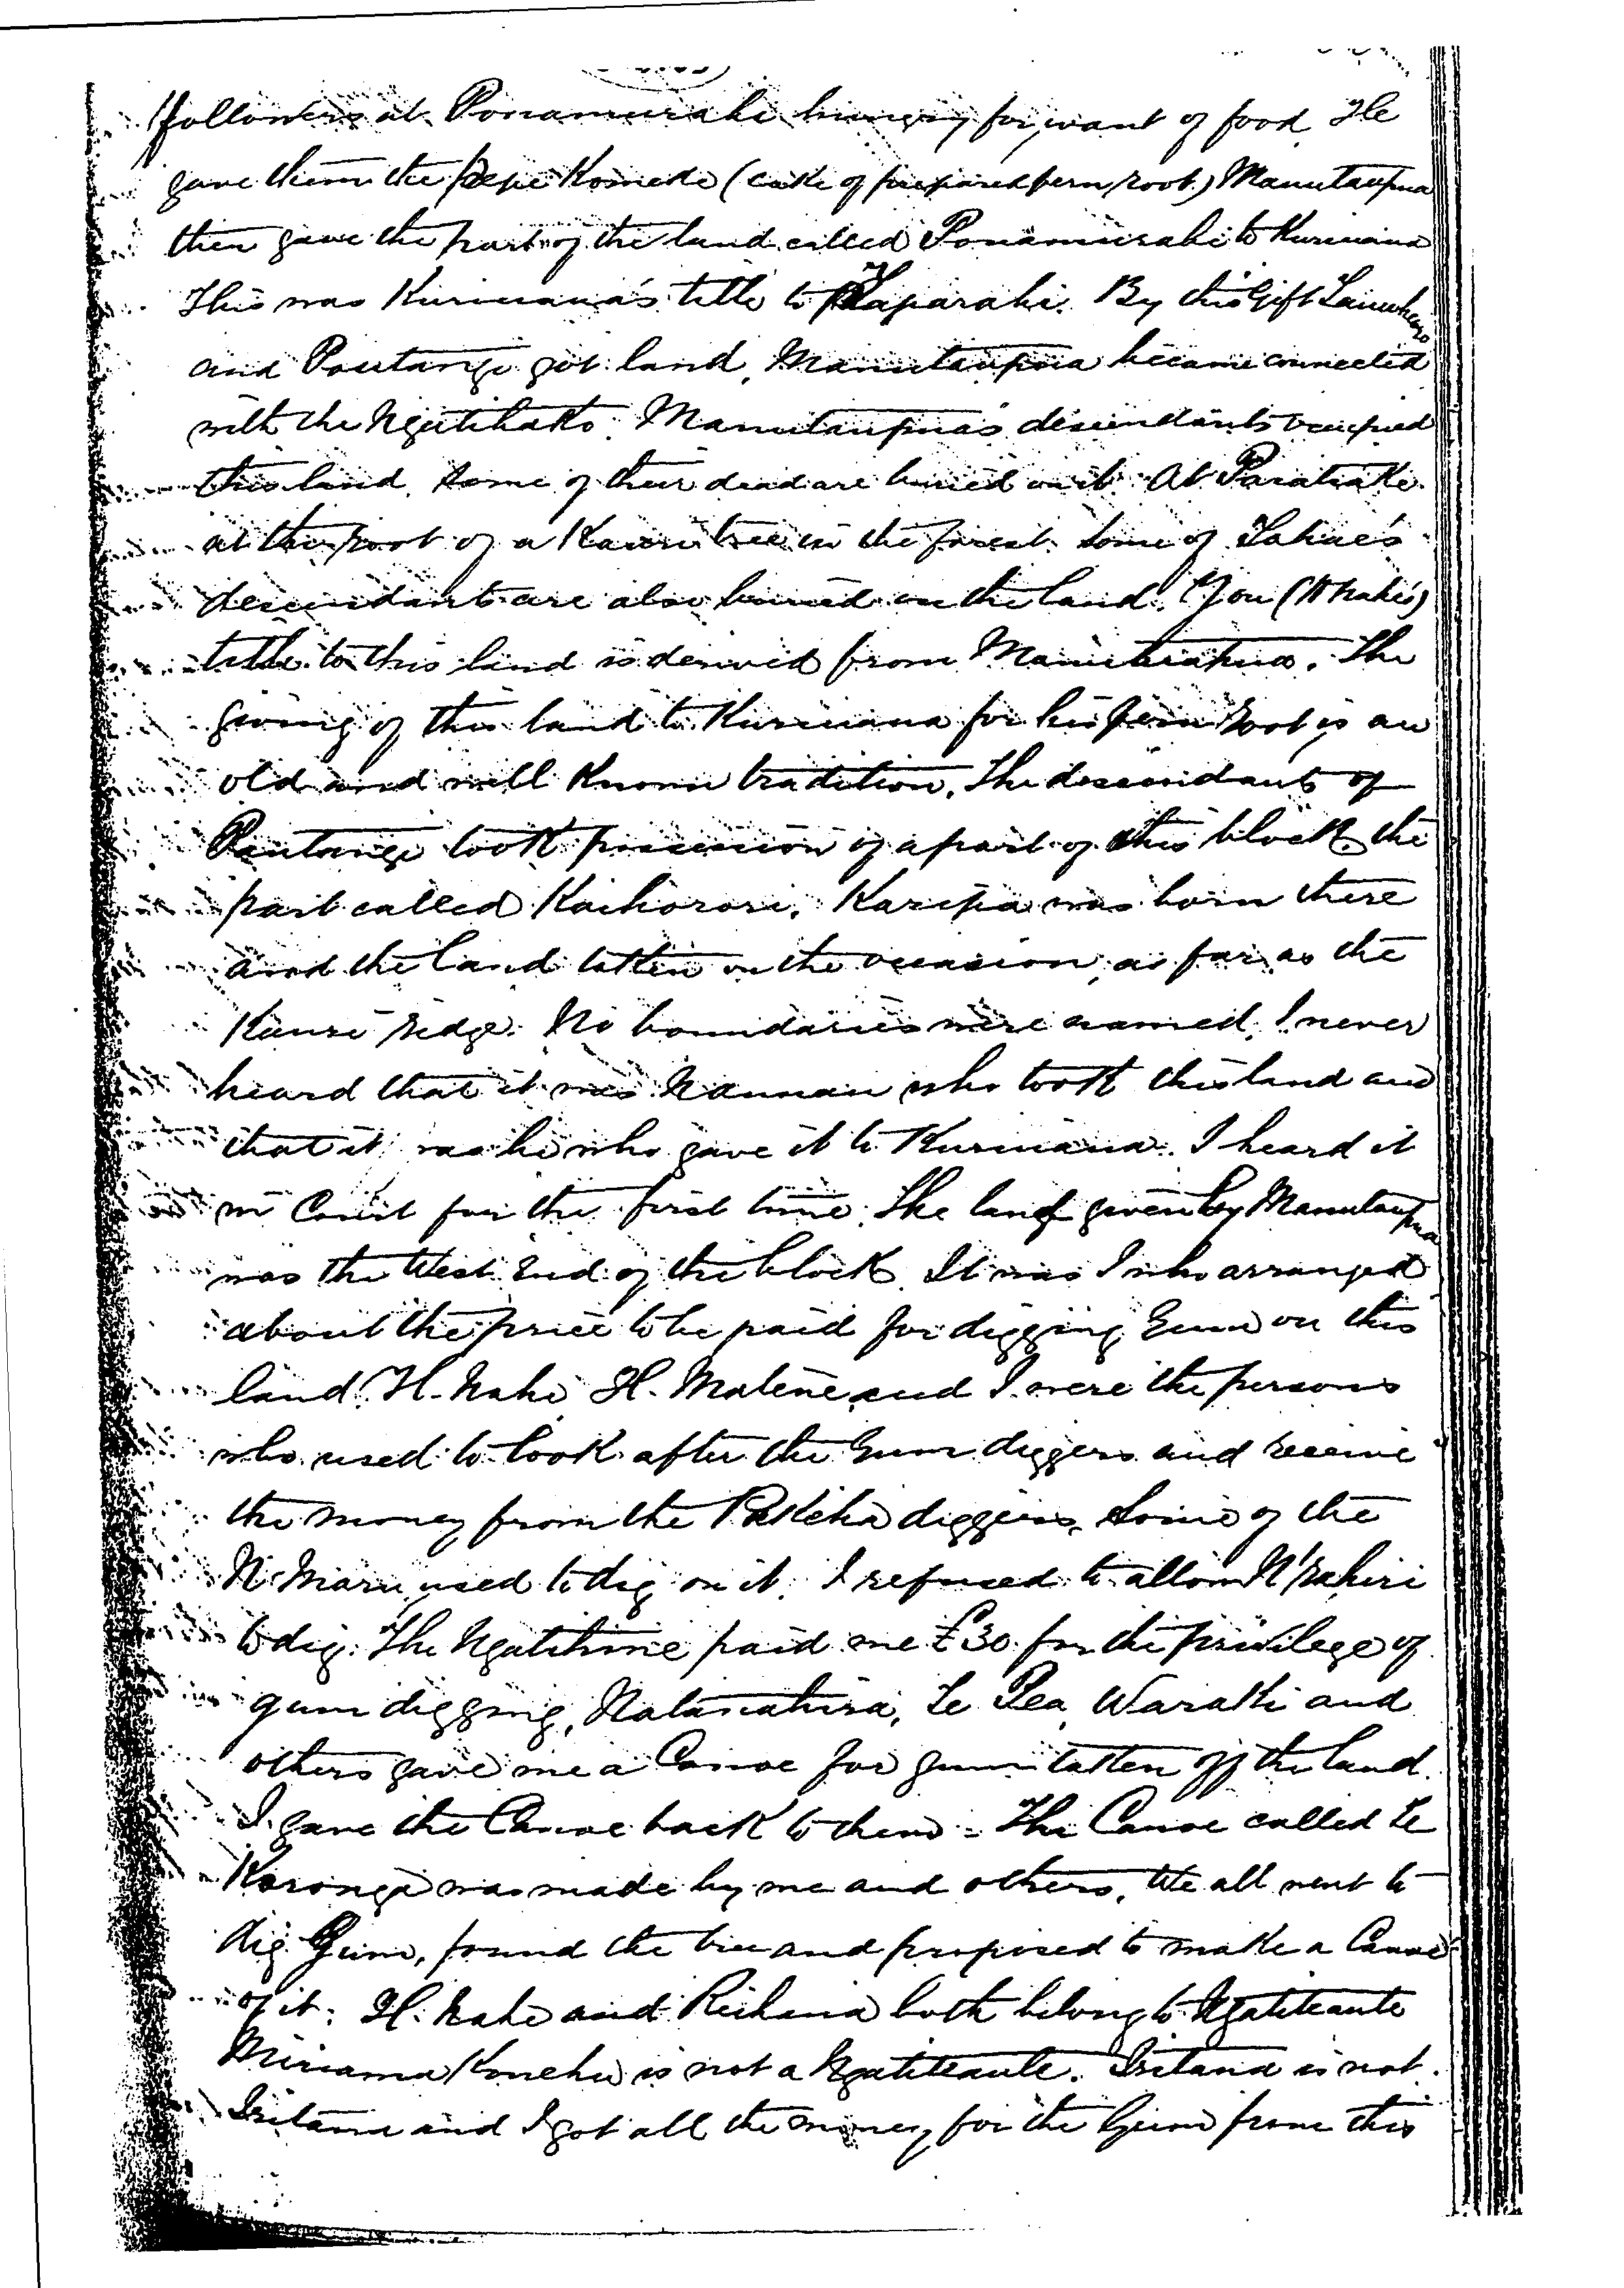 followers at Ponamuraki hungry for want of food He
gave them the pepe Komeke (cake of prepared fern root.) Manutaupua
then gave the part of the land called Ponamuraki to Kuriuaua
This was Kuriuaua's title to Taparahi. By this Gift
and Pautangi got land, Manutaupua became connected
with the Ngatihako. Manutaupua's descendants occupied
this land. Some of their dead are buried on it. At Paratiake
at the root of a Kauri tree in the forest. Some of Tahae's
descendants are also buried on the land. You (H Nahe's)
title to this land is derived from Manutaupua. The
giving of this land to Kuriuaua for his fern root is an
old and well known tradition. The descendants of
Pautangi took possession of a part of this block the
part called Kaihorori. Karipa was born there
and the land taken on the occasion, as far as the
Kauri ridge. No boundaries were named. I never
heard that it was Naunau who took this land and
that it was he who gave it to Kuriuaua. I heard it
in Court for the first time. The land given by Manutaupua
was the West End of the block. It was I who arranged
about the price to be paid for digging Gum on this
land. H. Nahe H. Matene and I were the persons
who used to look after the Gum diggers and receive
the money from the Pakeha diggers. Some of the
N. Maru used to dig on it. I refused to allow N'rahiri
to dig. The Ngatihine paid me £30. for the privilege of
gum digging, Natanahira, Te Pea, Waraki and
others gave me a Canoe for gum taken off the land.
I gave the Canoe back to them - The Canoe called Te
Karonga was made by me and others, We all went to
dig Gum, found the tree and proposed to make a Canoe
of it. H. Nahe and Reihana both belong to Ngatiteaute
Miriama Konehu is not a Ngatiteaute. Iritana is not.
Iritana and I got all the money for the Gum from this